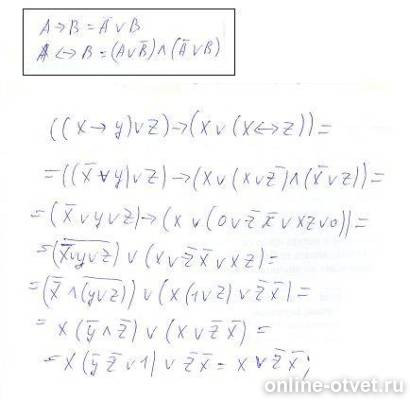 A → B = A̅ ∨ B
A ↔ B = (A ∨ B̅) ∧ (A̅ ∨ B)
((x → y) ∨ z) → (x ∨ (x ↔ z)) =
= ((x̅ ∨ y) ∨ z) → (x ∨ (x ∨ z̅) ∧ (x̅ ∨ z)) =
= (x̅ ∨ y ∨ z) → (x ∨ (0 ∨ z̅ x̅ ∨ xz ∨ 0)) =
= (x̅ ∨ y ∨ z)̅ ∨ (x ∨ z̅ x̅ ∨ xz) =
= (x̿ ∧ (y ∨ z)̅) ∨ (x (1 ∨ z) ∨ z̅ x̅) =
= x (y̅ ∧ z̅) ∨ (x ∨ z̅ x̅) =
= x (y̅ z̅ ∨ 1) ∨ z̅ x̅ = x ∨ z̅ x̅ ;
online-otvet.ru